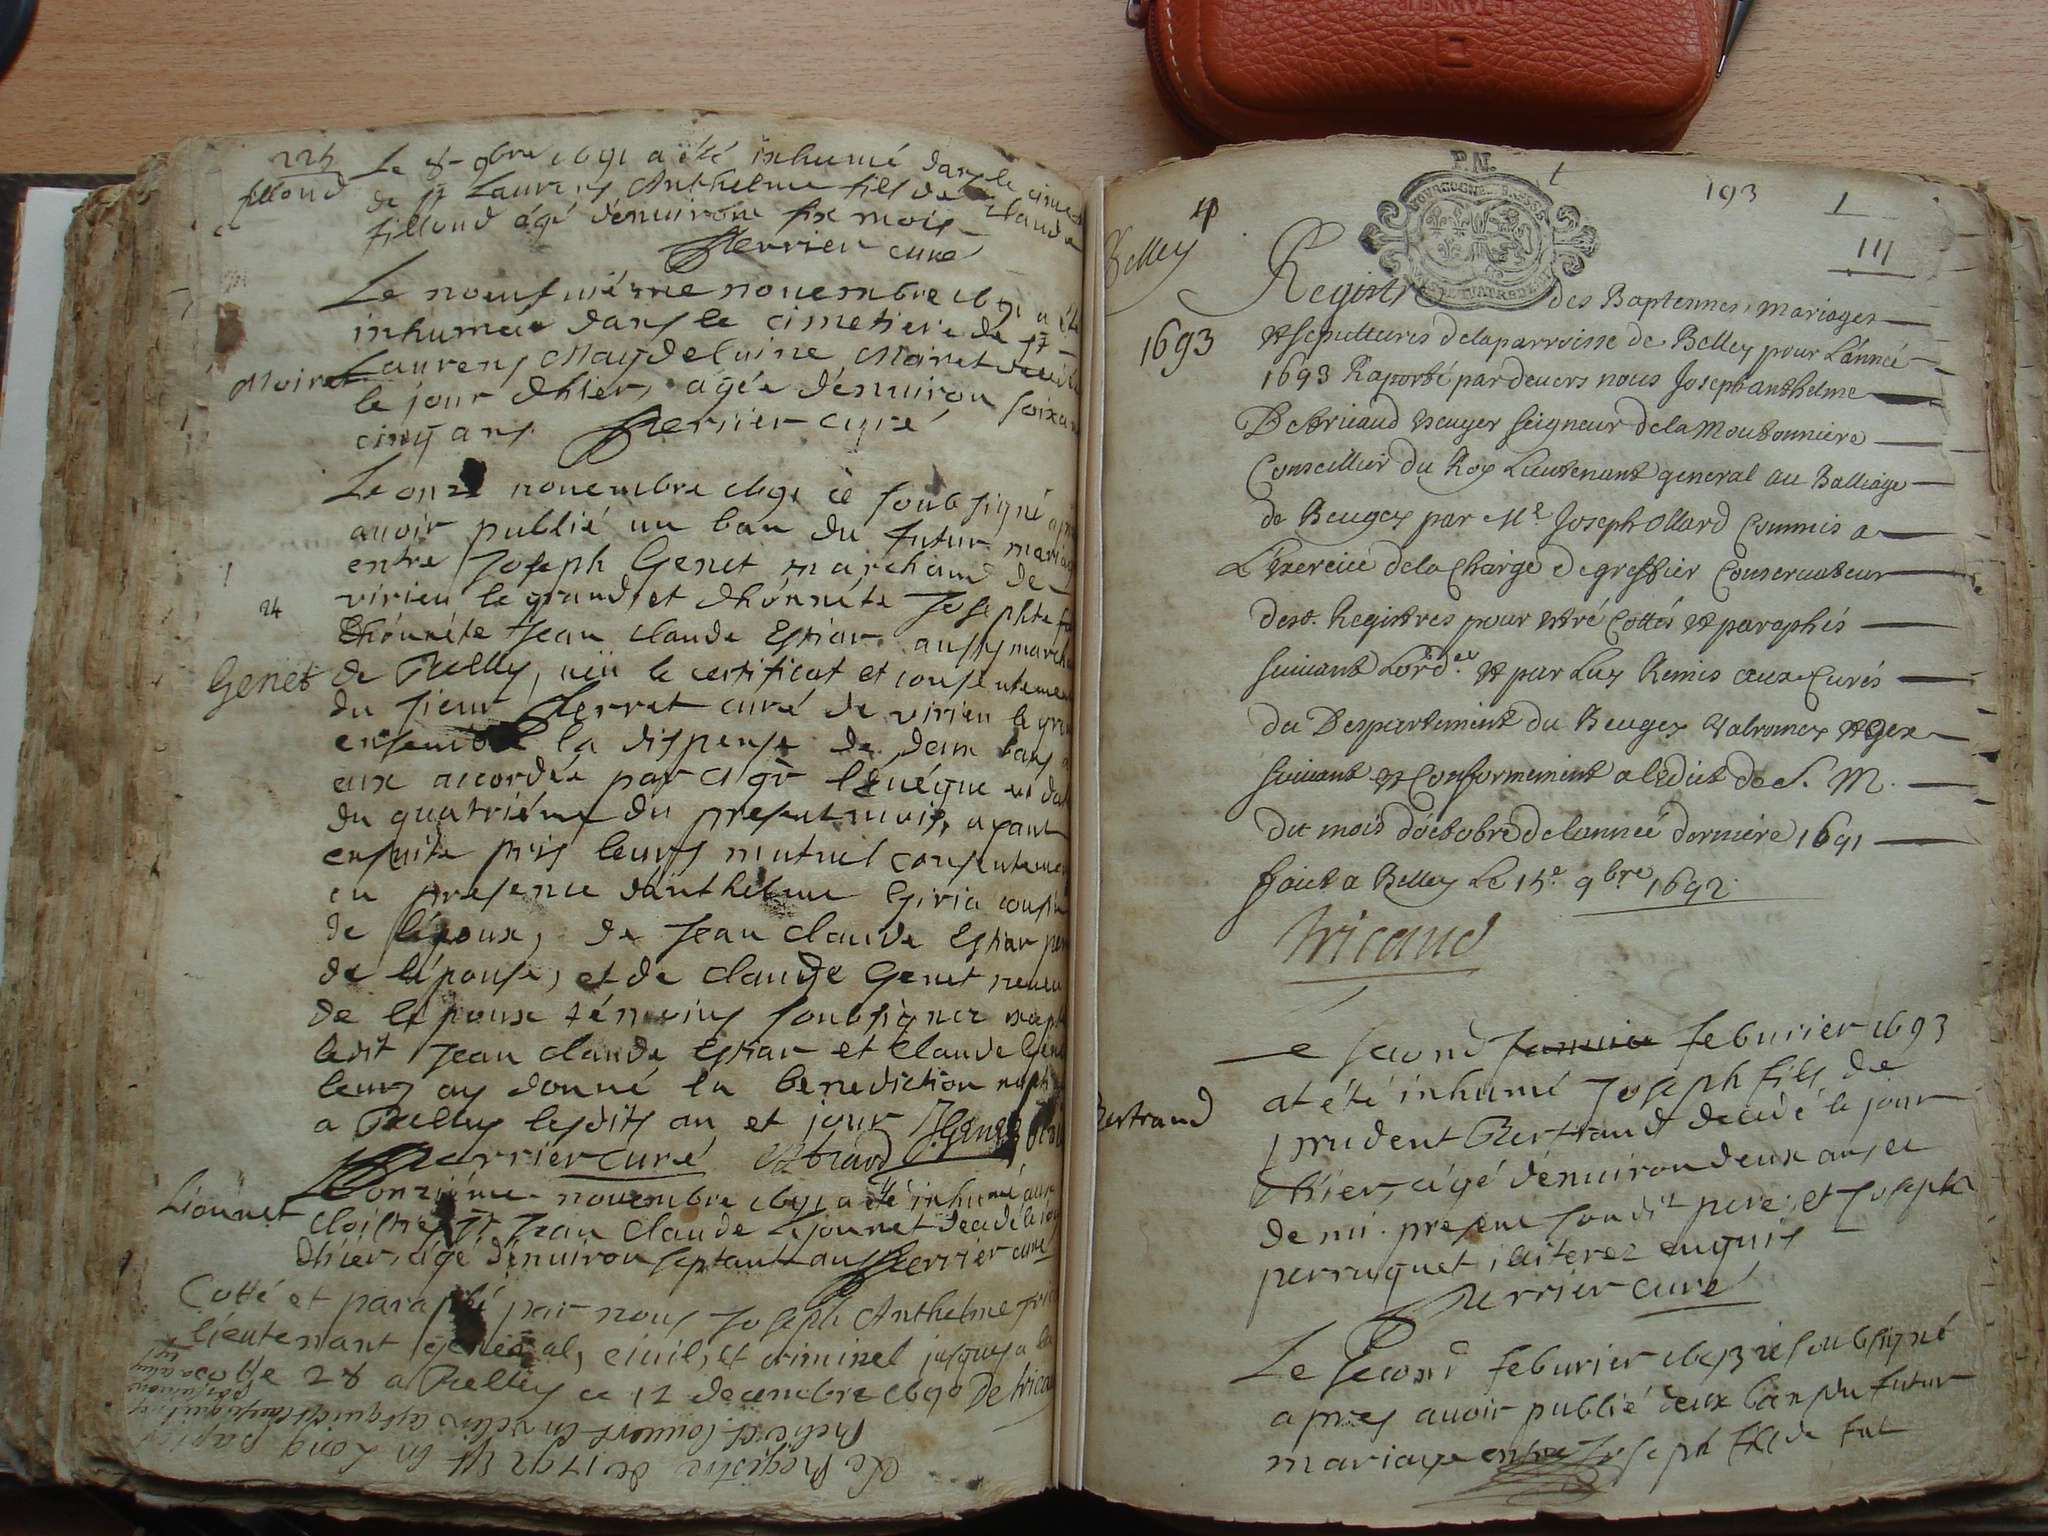 225
fillond
Le 8 9bre 1691 a été inhumé dans le cime
de st Laurens Anthelme fils de Claude
fillond âgé d'enuiron six mois
Perrier curé
Le neufuiéme nouembre 1691 a été
inhumée dans le cimetiere de st
Moiret
Laurens Magdelaine Moiret
le jour d'hier, agée d'enuiron soixan
cinq ans. Perrier curé
Le onze nouembre 1691 ie soubsigné
auoir publié un ban du futur mariag
entre Joseph Genet marchand de
24
virieu le grand, et d'honnéte Josephte
d'honnéte Jean Claude aussy march
Genet
de Belley, ueü le certificat et consentemen
du sieur Perret curé de virieu le gra
ensemble la dispense de deux bans
eux accordée par Mgr l'Euéque en da
du quatriéme du present mois, ayant
ensuite pris leurs mutuel consentemen
en presence d'anthelme Giria cousin
de l'époux, de Jean Claude
de l'épouse, et de Claude Genet neueu
de l'epoux témoins soubsignez
ledit Jean Claude et Claude Gen
leurs ay donné la benediction nupti
a Belley lesdits an et jour J. Genet
Perrier curé
Lionnet
L'onziéme nouembre 1691 a été inhumé aux
cloistres Jean Claude Lionnet decedé le jou
d'hier, âgé d'enuiron septante ans Perrier curé
Cotté et paraphé par nous Joseph Anthelme
lieutenant general, ciuil, et criminel jusques a la
28 a Belley ce 12 decembre 1690 De trica
Le Registre de 1792 Est En Long papier
P.N.
BOURGOGNE BRESSE
193
1
111
Belley
1693
Registre des Baptemes, mariages
et sepultures de la parroisse de Belley pour L'année
1693 Raporté pardeuers nous Joseph anthelme
De tricaud escuyer seigneur de la Moutonniere
Conseillier du Roy Lieutenant general au Balliage
de Beugey par Me Joseph Ollard Commis a
L'exercice de la Charge de greffier Conseruateur
desd. Registres pour estré Cottés et paraphés
suiuant et par Luy Remis aux Curés
du Despartement du Beugey Valromey et gex
suiuant et Conformement a ledict de S. M.
du mois d'octobre de lanneé derniere 1691
faict a Belley Le 15e 9bre 1692
Tricaud
Le second januier feburier 1693
at été inhumé Joseph fils de
Bertrand
prudent Bertrand decedé le jour
d'hier, agé d'enuiron deux ans et
demi. present son dit pere, et Joseph
perruquet illiterez enquis
Perrier curé
Le second feburier 1693 ie soubsigné
apres auoir publié deux bans du futur
mariage entre Joseph fils de fut